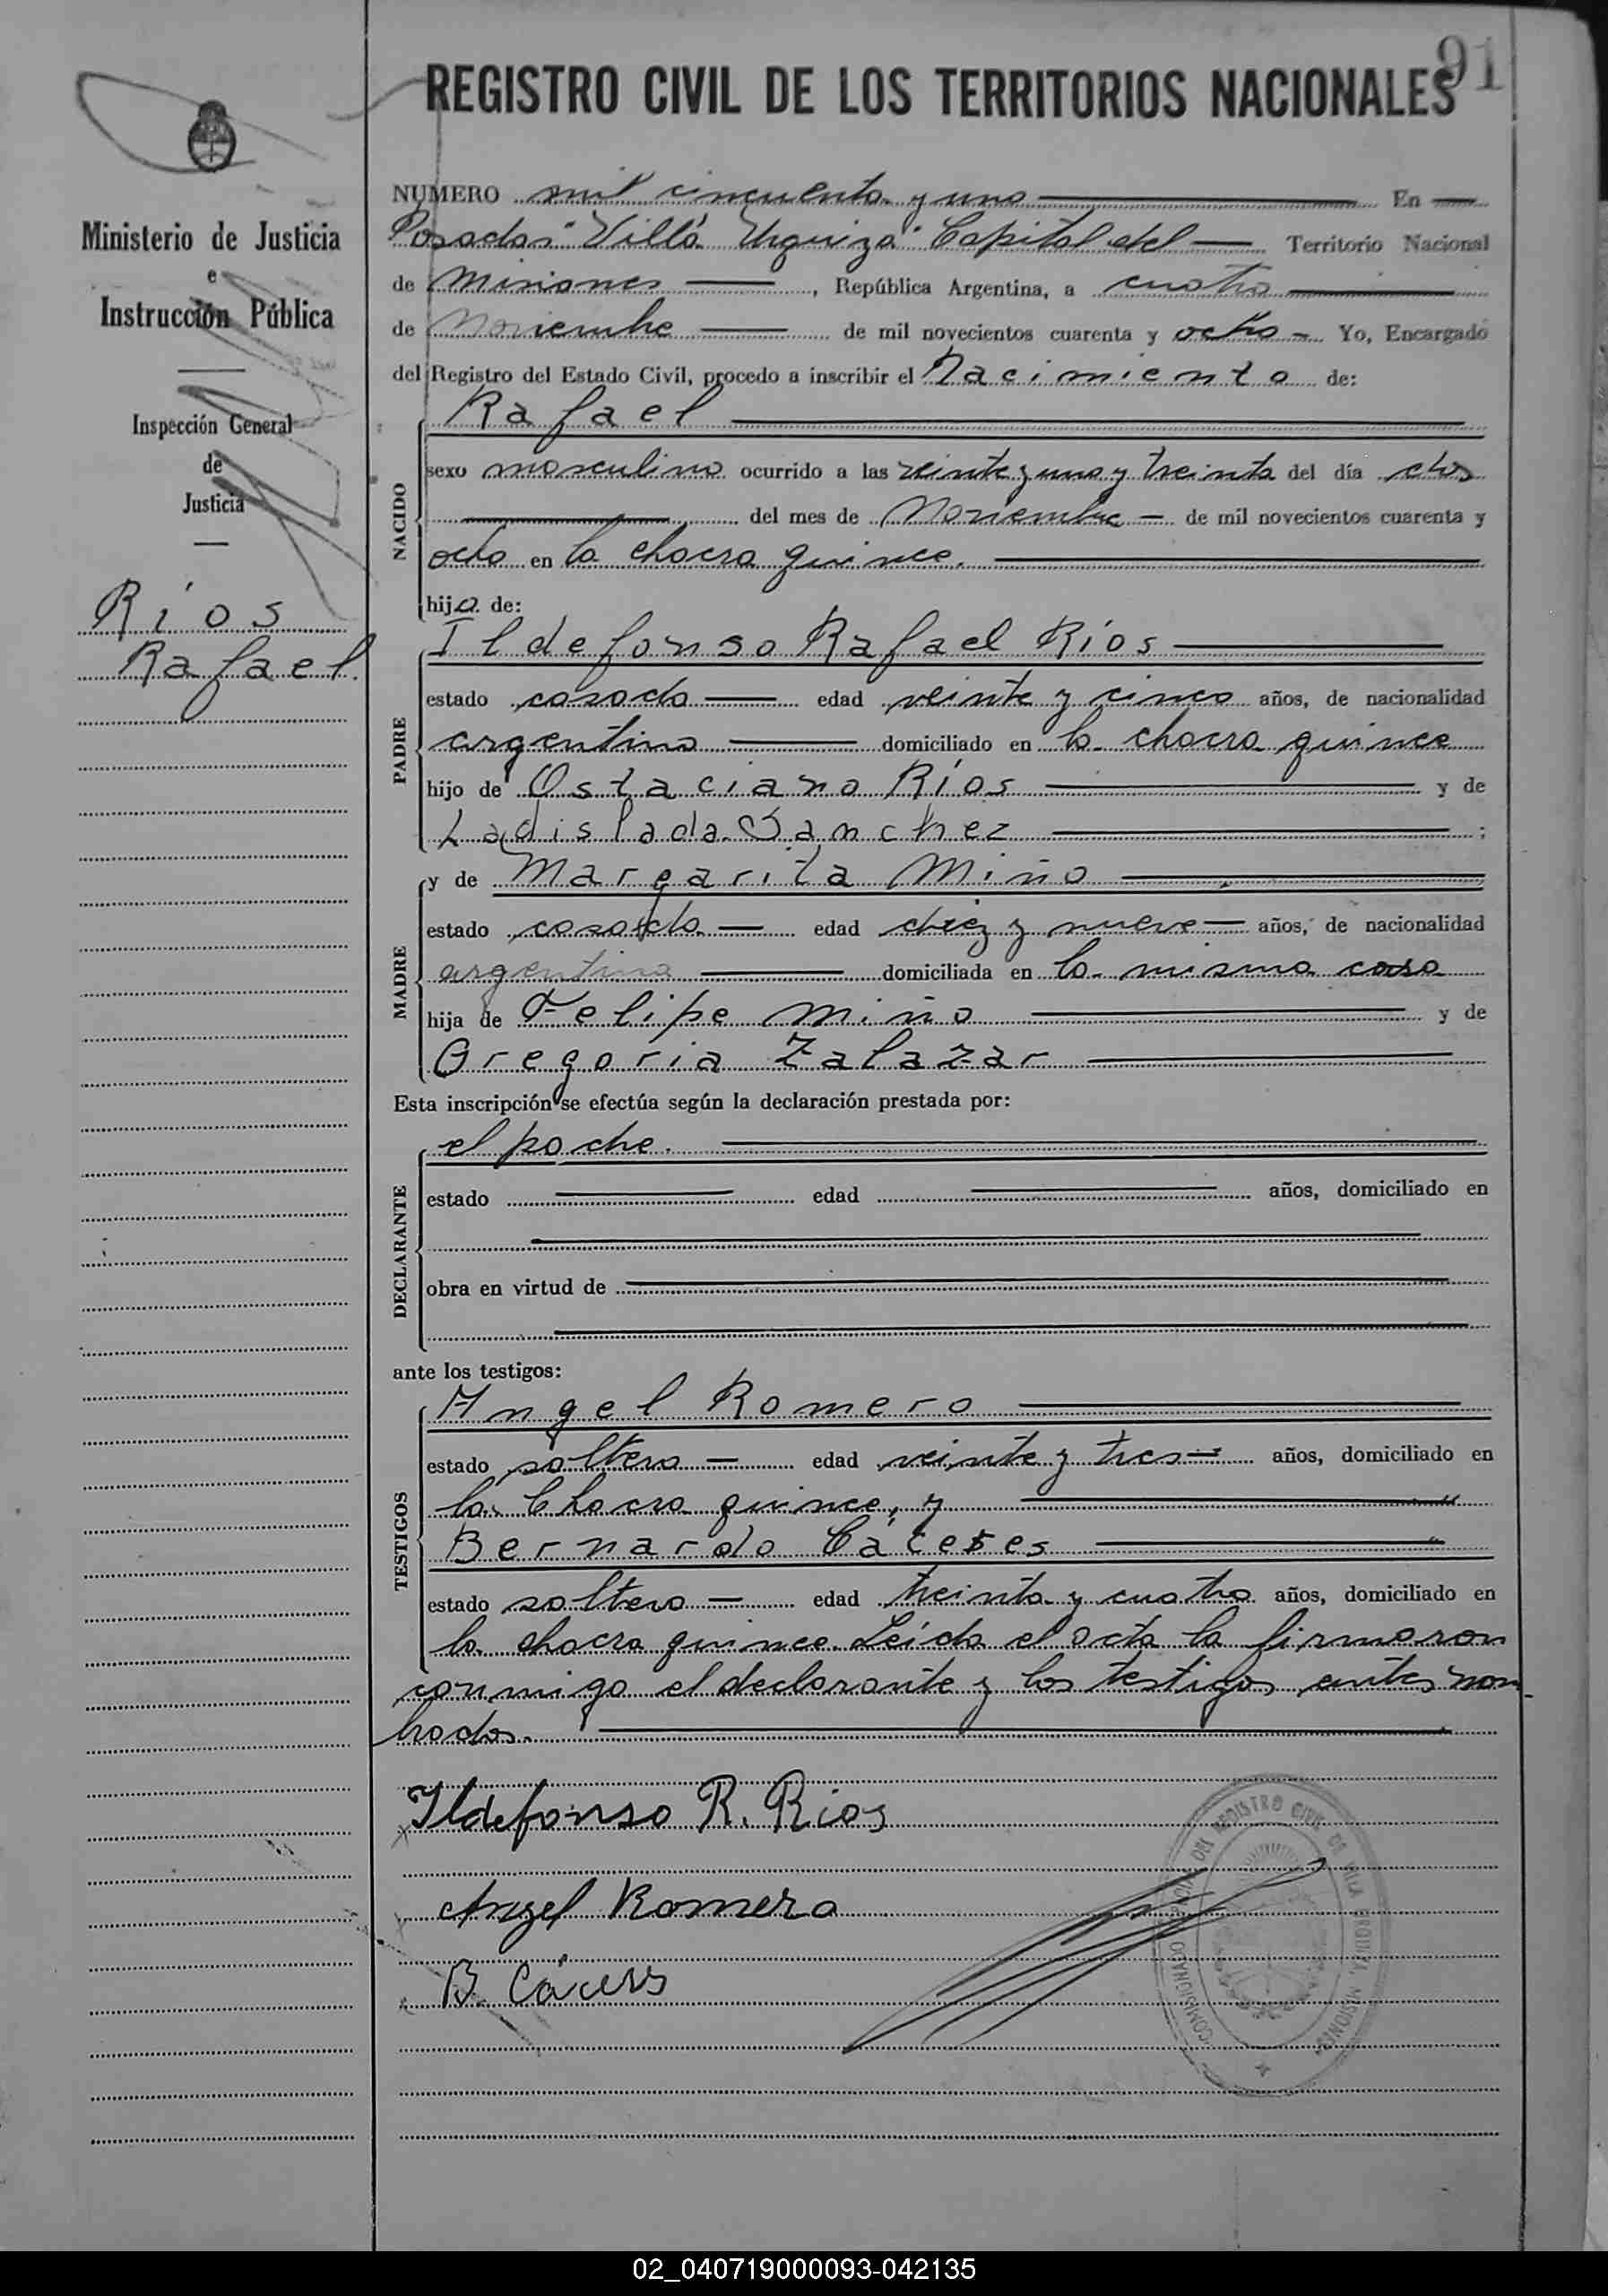 91
REGISTRO CIVIL DE LOS TERRITORIOS NACIONALES
Ministerio de Justicia
e
Instrucción Pública
Inspección General
de
Justicia
Ríos
Rafael.
NUMERO mil cincuenta y uno En
Posadas "Villa Urquiza" Capital del Territorio Nacional
de Misiones, República Argentina, a cuatro
de Noviembre de mil novecientos cuarenta y ocho Yo, Encargado
del Registro del Estado Civil, procedo a inscribir el Nacimiento de:
NACIDO
Rafael
sexo masculino ocurrido a las veinte y una y treinta del día dos
del mes de Noviembre de mil novecientos cuarenta y
ocho en la chacra quince.
hijo de:
PADRE
Ildefonso Rafael Ríos
estado casado edad veinte y cinco años, de nacionalidad
argentino domiciliado en la chacra quince
hijo de Ostaciano Ríos y de
Ladislada Sanchez ;
MADRE
y de Margarita Miño
estado casada edad diez y nueve años, de nacionalidad
argentina domiciliada en la misma casa
hija de Felipe Miño y de
Gregoria Zalazar
Esta inscripción se efectúa según la declaración prestada por:
DECLARANTE
el padre.
estado edad años, domiciliado en
obra en virtud de
ante los testigos:
TESTIGOS
Angel Romero
estado soltero edad veinte y tres años, domiciliado en
la Chacra quince, y
Bernardo Cáceres
estado soltero edad treinta y cuatro años, domiciliado en
la chacra quince. Leída el acta la firmaron
conmigo el declarante y los testigos antes nom-
brados.
Ildefonso R. Rios
Angel Romero
B. Cáceres
COMISIONADO DEL REGISTRO CIVIL DE VILLA URQUIZA, MISIONES
02_040719000093-042135